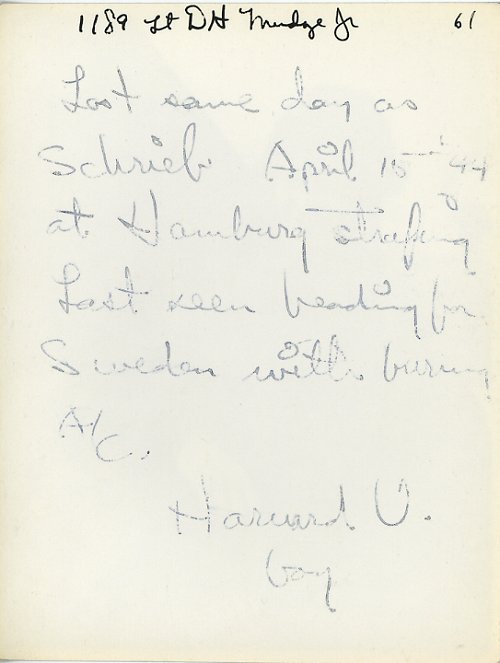 1189 Lt DH Mudge Jr 61
Lost same day as
Schrieb April 15 '44
at Hamburg strafing
Last seen heading for
Sweden with burning
A/C.
Harvard U.
boy